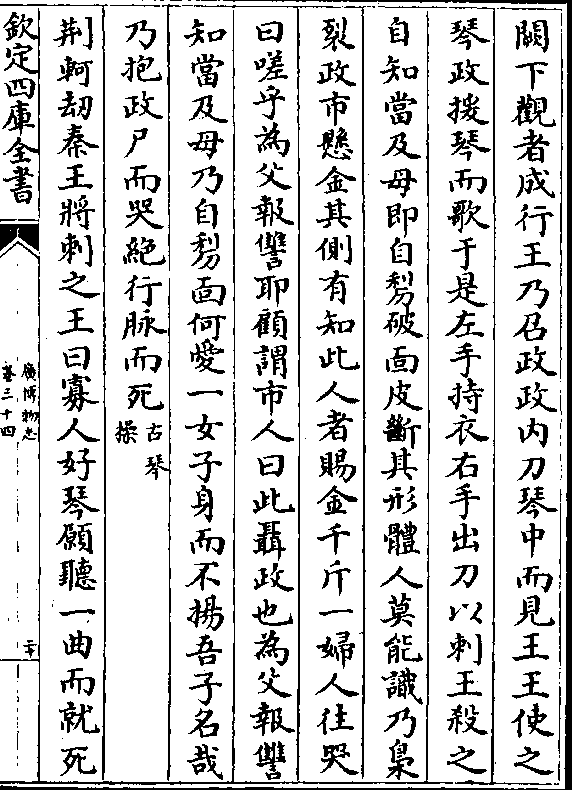 闕下觀者成行王乃召政政内刀琴中而見王王使之
琴政援琴而歌于是左手持衣右手出刀以刺王殺之
自知當及母即自剺破面皮斷其形體人莫能識乃梟
裂政市懸金其側有知此人者賜金千斤一婦人往哭
曰嗟乎為父報讐耶顧謂市人曰此聶政也為父報讐
知當及母乃自剺面何愛一女子身而不揚吾子名哉
乃抱政尸而哭絶行脉而死古琴
操
荆軻刼秦王將刺之王曰寡人好琴願聽一曲而就死
欽定四庫全書
廣博物志
卷三十四
二十